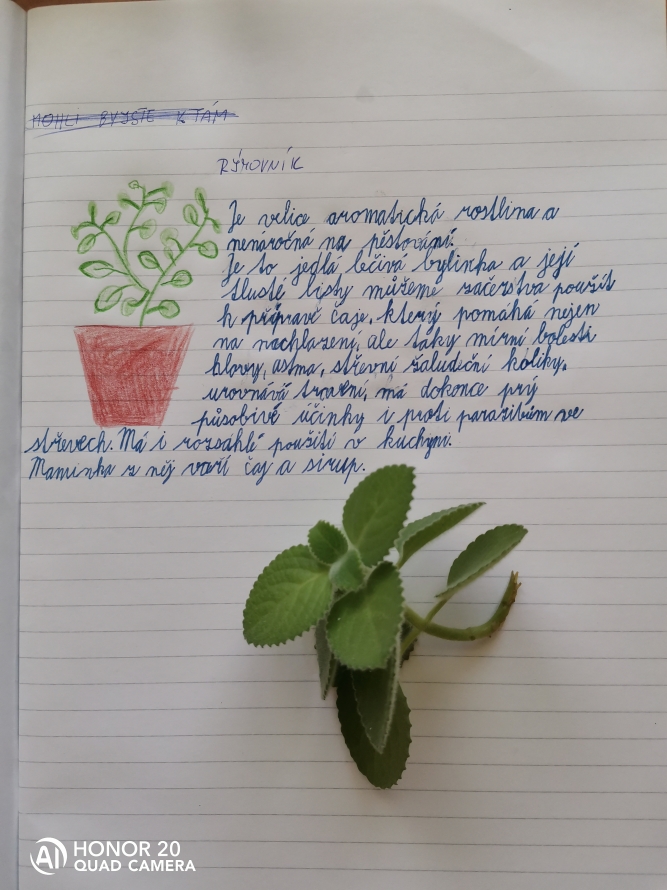 MOHLI BYJSTE K TÁM
RÝMOVNÍK
Je velice aromatická rostlina a
nenáročná na pěstování.
Je to jedlá léčivá bylinka a její
tlusté listy můžeme začerstva použít
k přípravě čaje, který pomáhá nejen
na nachlazení, ale taky mírní bolesti
hlavy, astma, střevní žaludeční koliky,
urovnává travení, má dokonce prý
působivé účinky i proti parazitům ve
střevech. Má i rozsáhlé použití v kuchyni.
Maminka z něj vaří čaj a sirup.
HONOR 20
QUAD CAMERA